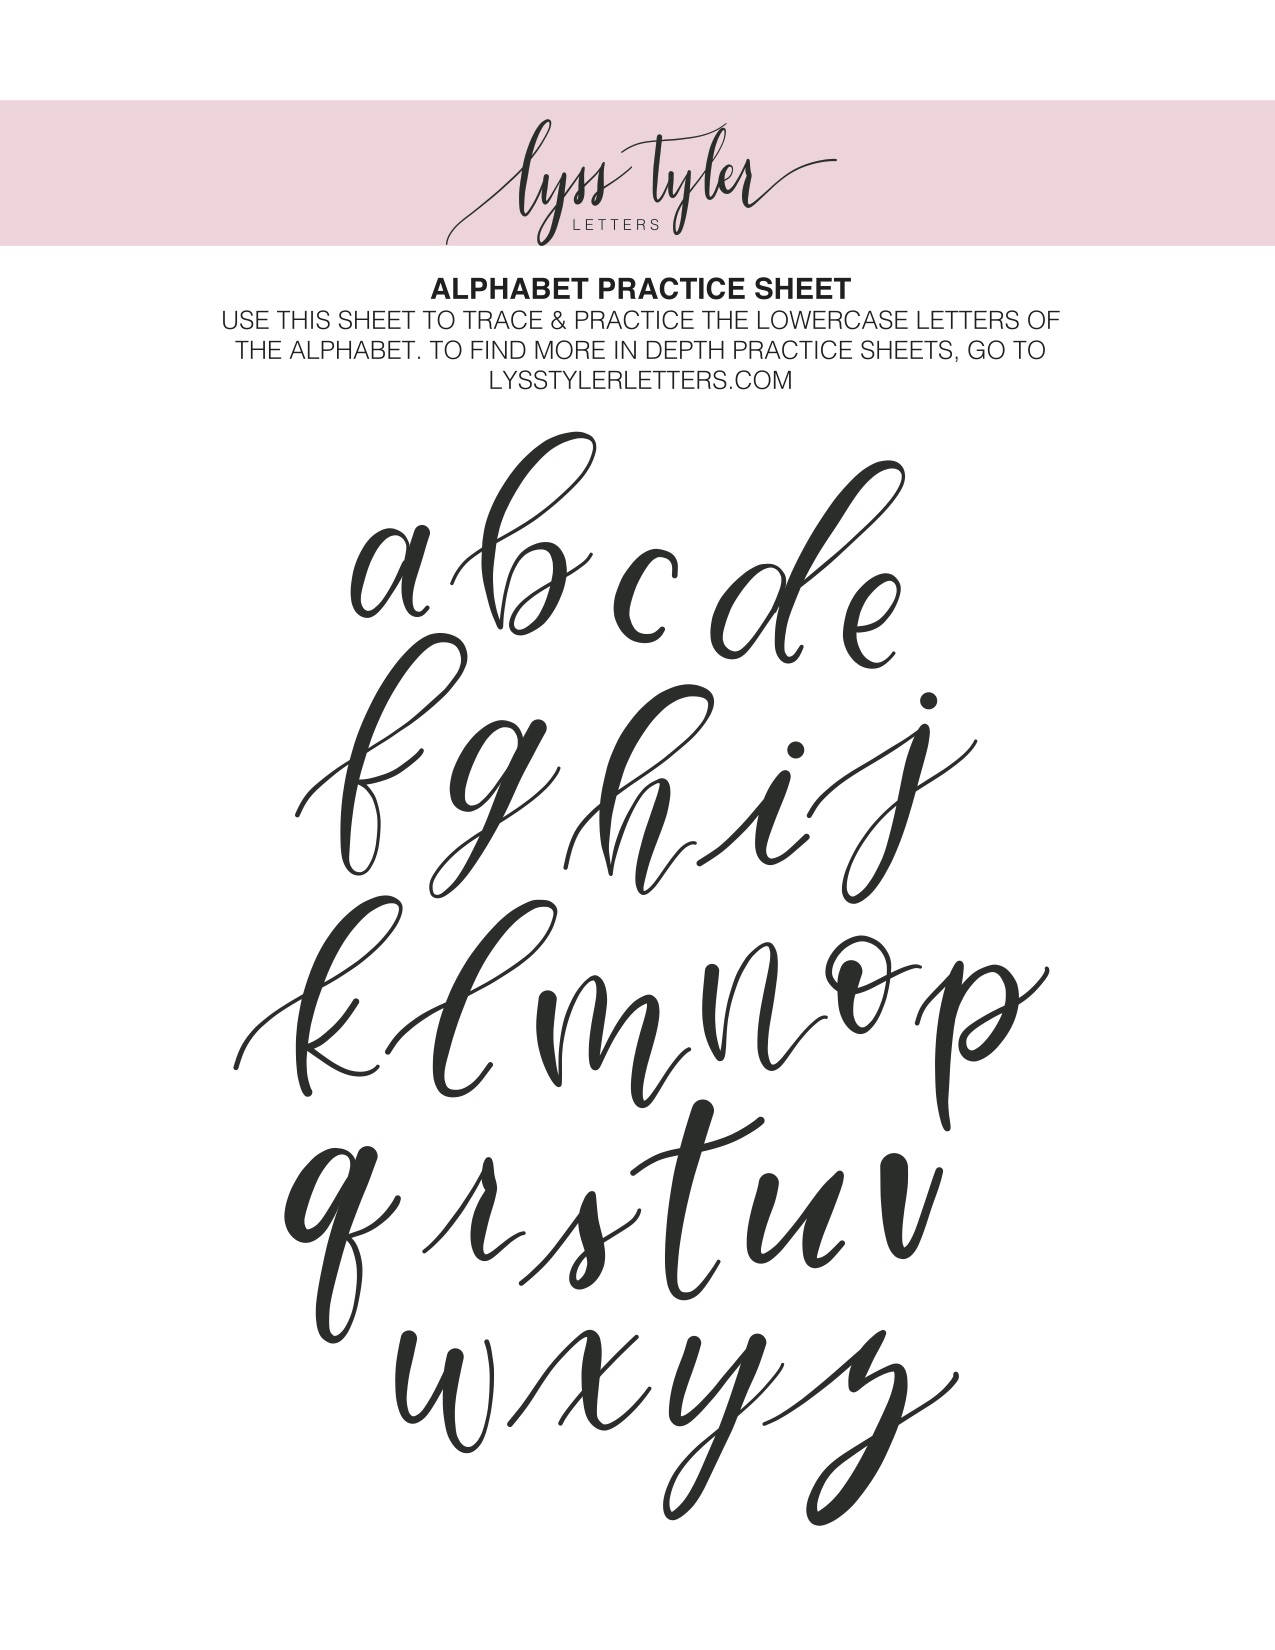 lyss tyler
LETTERS
ALPHABET PRACTICE SHEET
USE THIS SHEET TO TRACE & PRACTICE THE LOWERCASE LETTERS OF
THE ALPHABET. TO FIND MORE IN DEPTH PRACTICE SHEETS, GO TO
LYSSTYLERLETTERS.COM
a b c d e
f g h i j
k l m n o p
q r s t u v
w x y z